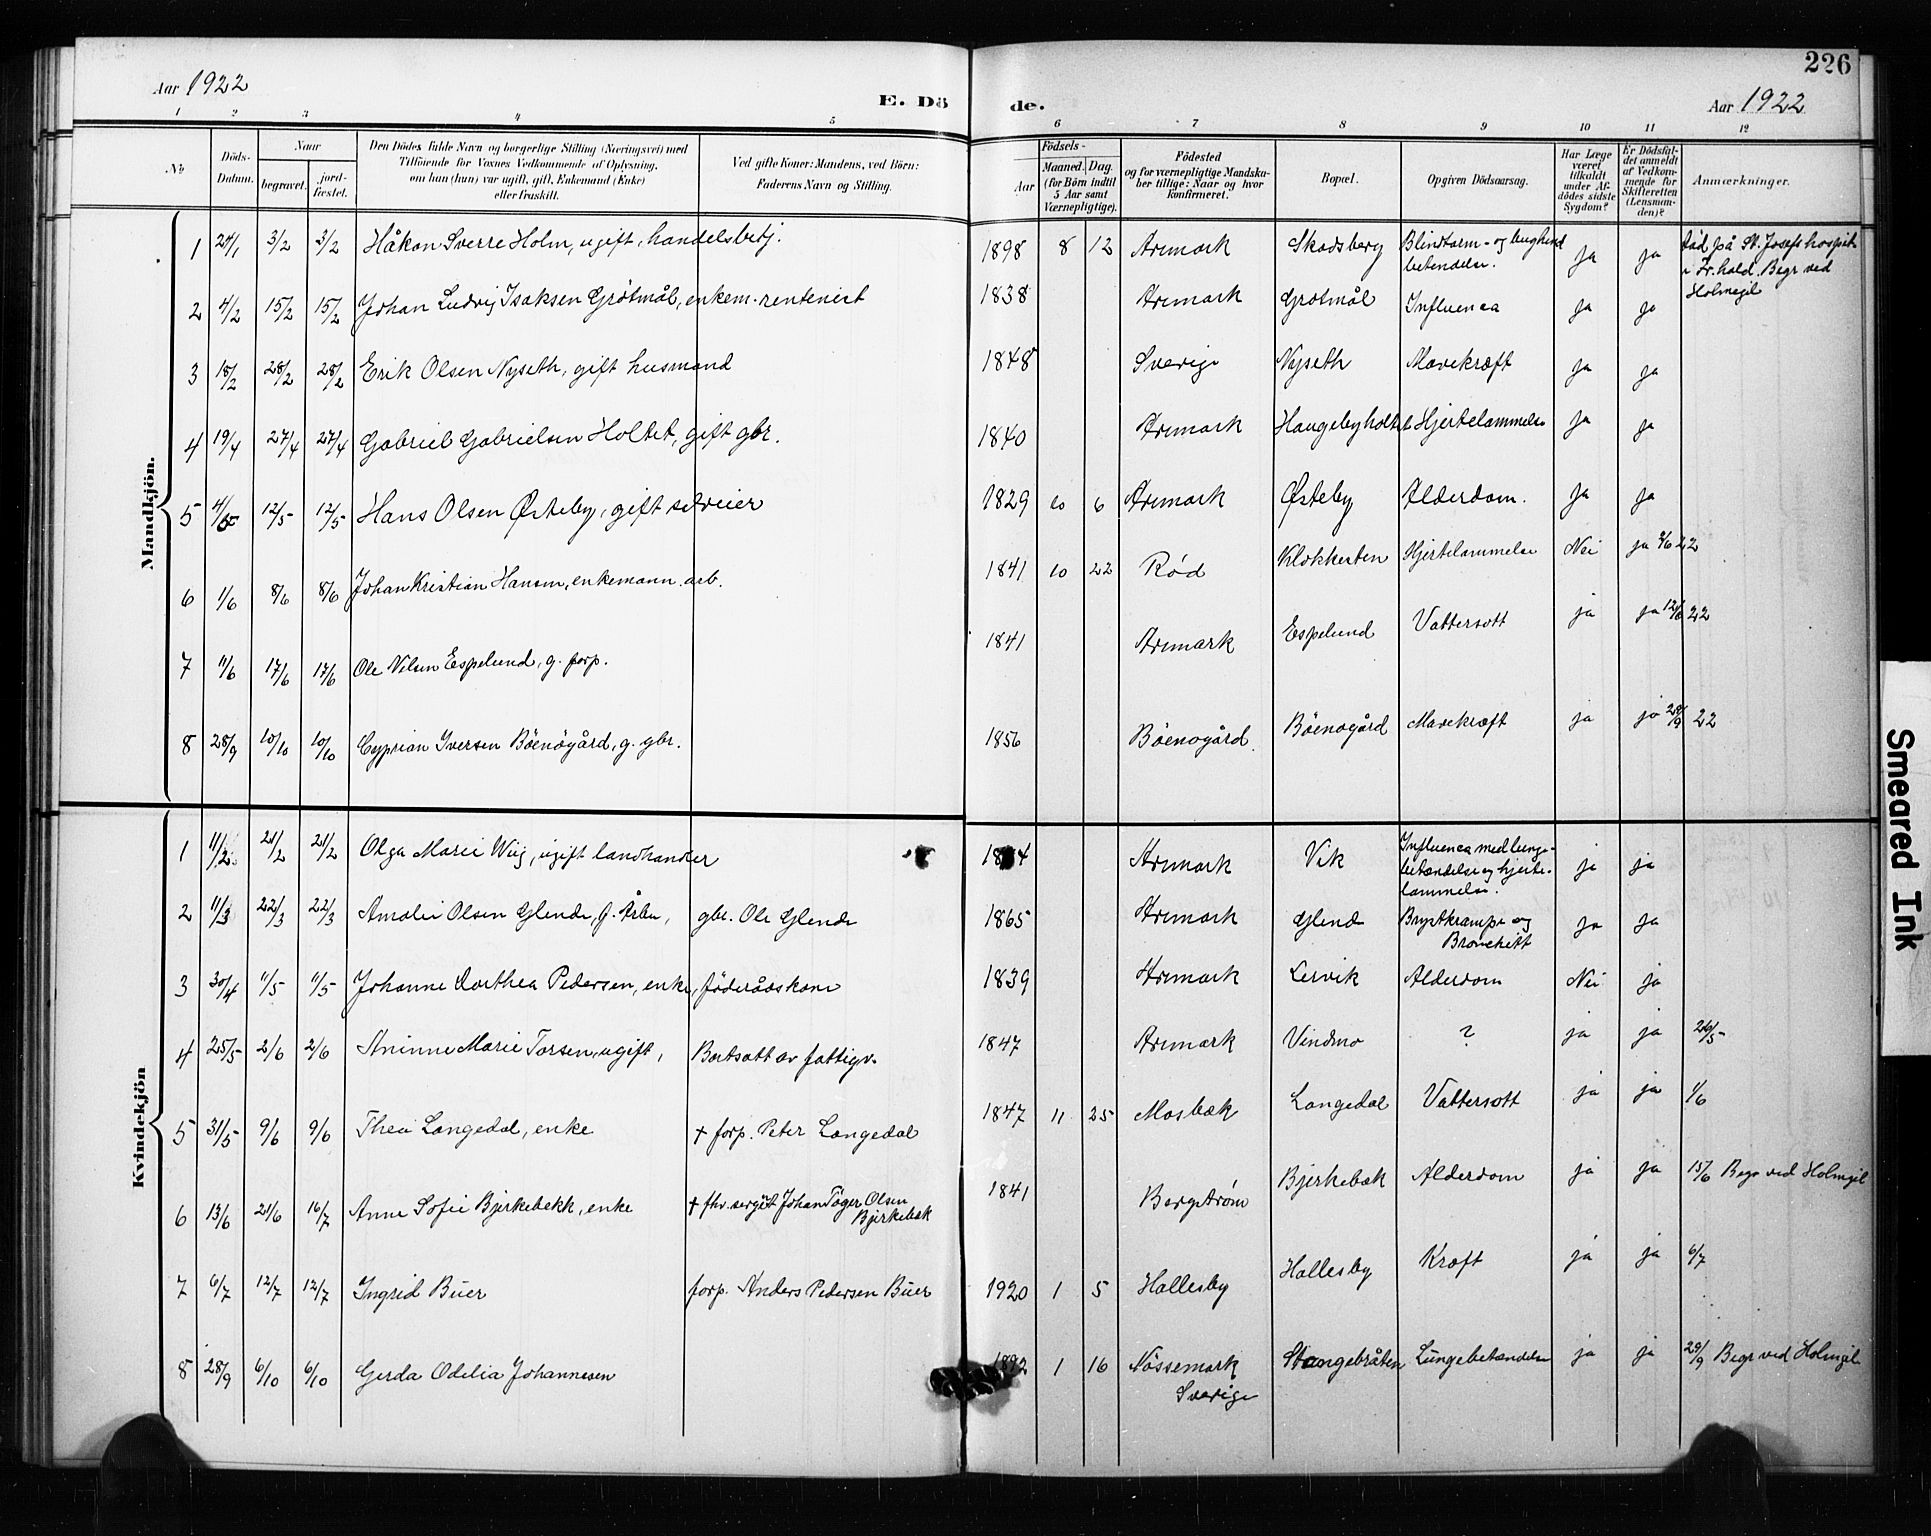 226
Aar 1922
E. Dö
de.
Aar 1922
1 2 3 4 5 6 7 8 9 10 11 12
No
Döds-Datum.
Naar
begravet.
jord-fæstet.
Den Dödes fulde Navn og borgerlige Stilling (Næringsvei) med
Tilföiende for Voxnes Vedkommende af Oplysning,
om han (hun) var ugift, gift, Enkemand (Enke)
eller fraskilt.
Ved gifte Koner: Mandens, ved Börn:
Faderens Navn og Stilling.
Födsels-
Aar
Maaned. Dag.
(for Börn indtil
5 Aar samt
Værnepligtige).
Födested
og for værnepligtige Mandskaber tillige: Naar og hvor
konfirmeret.
Bopæl.
Opgiven Dödsaarsag.
Har Læge været tilkaldt under Afdödes sidste Sygdom?
Er Dödsfaldet anmeldt af Vedkommende for Skifteretten (Lensmanden)?
Anmærkninger.
Mandkjön.
1 24/1 3/2 3/2 Håkon Sverre Holm, ugift, handelsbetj. 1898 8 12 Aremark Skodsberg Blindtarm- og bughindbetendelse. ja ja Död på St. Josefs hospit. i Fr.hald. Begr ved Holmegil
2 4/2 15/2 15/2 Johan Ludvig Isaksen Grötmål, enkem. rentenist 1838 Aremark Grötmål Influensa ja ja
3 18/2 28/2 28/2 Erik Olsen Nyseth, gift husmand 1848 Sverige Nyseth Mavekræft ja ja
4 19/4 27/4 27/4 Gabriel Gabrielsen Holtet, gift gbr. 1840 Aremark Haugebyholtet Hjertelammelse ja ja
5 4/5 12/5 12/5 Hans Olsen Østeby, gift selveier 1829 10 6 Aremark Østeby Alderdom. ja ja
6 1/6 8/6 8/6 Johan Kristian Hansen, enkemann. arb. 1841 10 22 Rød Klokkerten Hjertelammelse Nei ja 2/6 22
7 11/6 17/6 17/6 Ole Nilsen Espelund, g. forp. 1841 Aremark Espelund Vattersott ja ja 12/6 22
8 28/9 10/10 10/10 Cyprian Iversen Böenögård, g. gbr. 1856 Böenogård Böenogård Mavekræft ja ja 28/9 22
Kvindekjön
1 11/2 21/2 21/2 Olga Marie Wiig, ugift landhandler Aremark Vik Influensa med lungebetændelse og hjertelammelse. ja ja
2 11/3 22/3 22/3 Amalie Olsen Glende, f. Årbu, gbr. Ole Glende 1865 Aremark Glende Brystkrampe og Bronchitt ja ja
3 30/4 11/5 11/5 Johanne Dorthea Pedersen, enke, föderådskone 1839 Aremark Lervik Alderdom Nei ja
4 25/5 2/6 2/6 Aninne Marie Torsen, ugift, Bortsatt av fattigv. 1847 Aremark Vindmo ? ja ja 26/5
5 31/5 9/6 9/6 Thea Langedal, enke + forp. Peter Langedal 1847 11 25 Mosbæk Langedal Vattersott ja ja 1/6
6 13/6 21/6 16/7 Anne Sofie Bjerkebekk, enke + fhv. sergt Johan Töger Olsen Bjerkebæk 1841 Bergström Bjerkebæk Alderdom ja ja 15/6 Begr ved Holmgil
7 6/7 12/7 12/7 Ingrid Buer forp. Anders Pedersen Buer 1920 1 5 Hallesby Hallesby Kræft ja ja 6/7
8 28/9 6/10 6/10 Gerda Odelia Johannesen 1892 1 16 Nössemark Sverige Stangebråten Lungebetændelse ja ja 29/9 Begr ved Holmgil
Smeared Ink